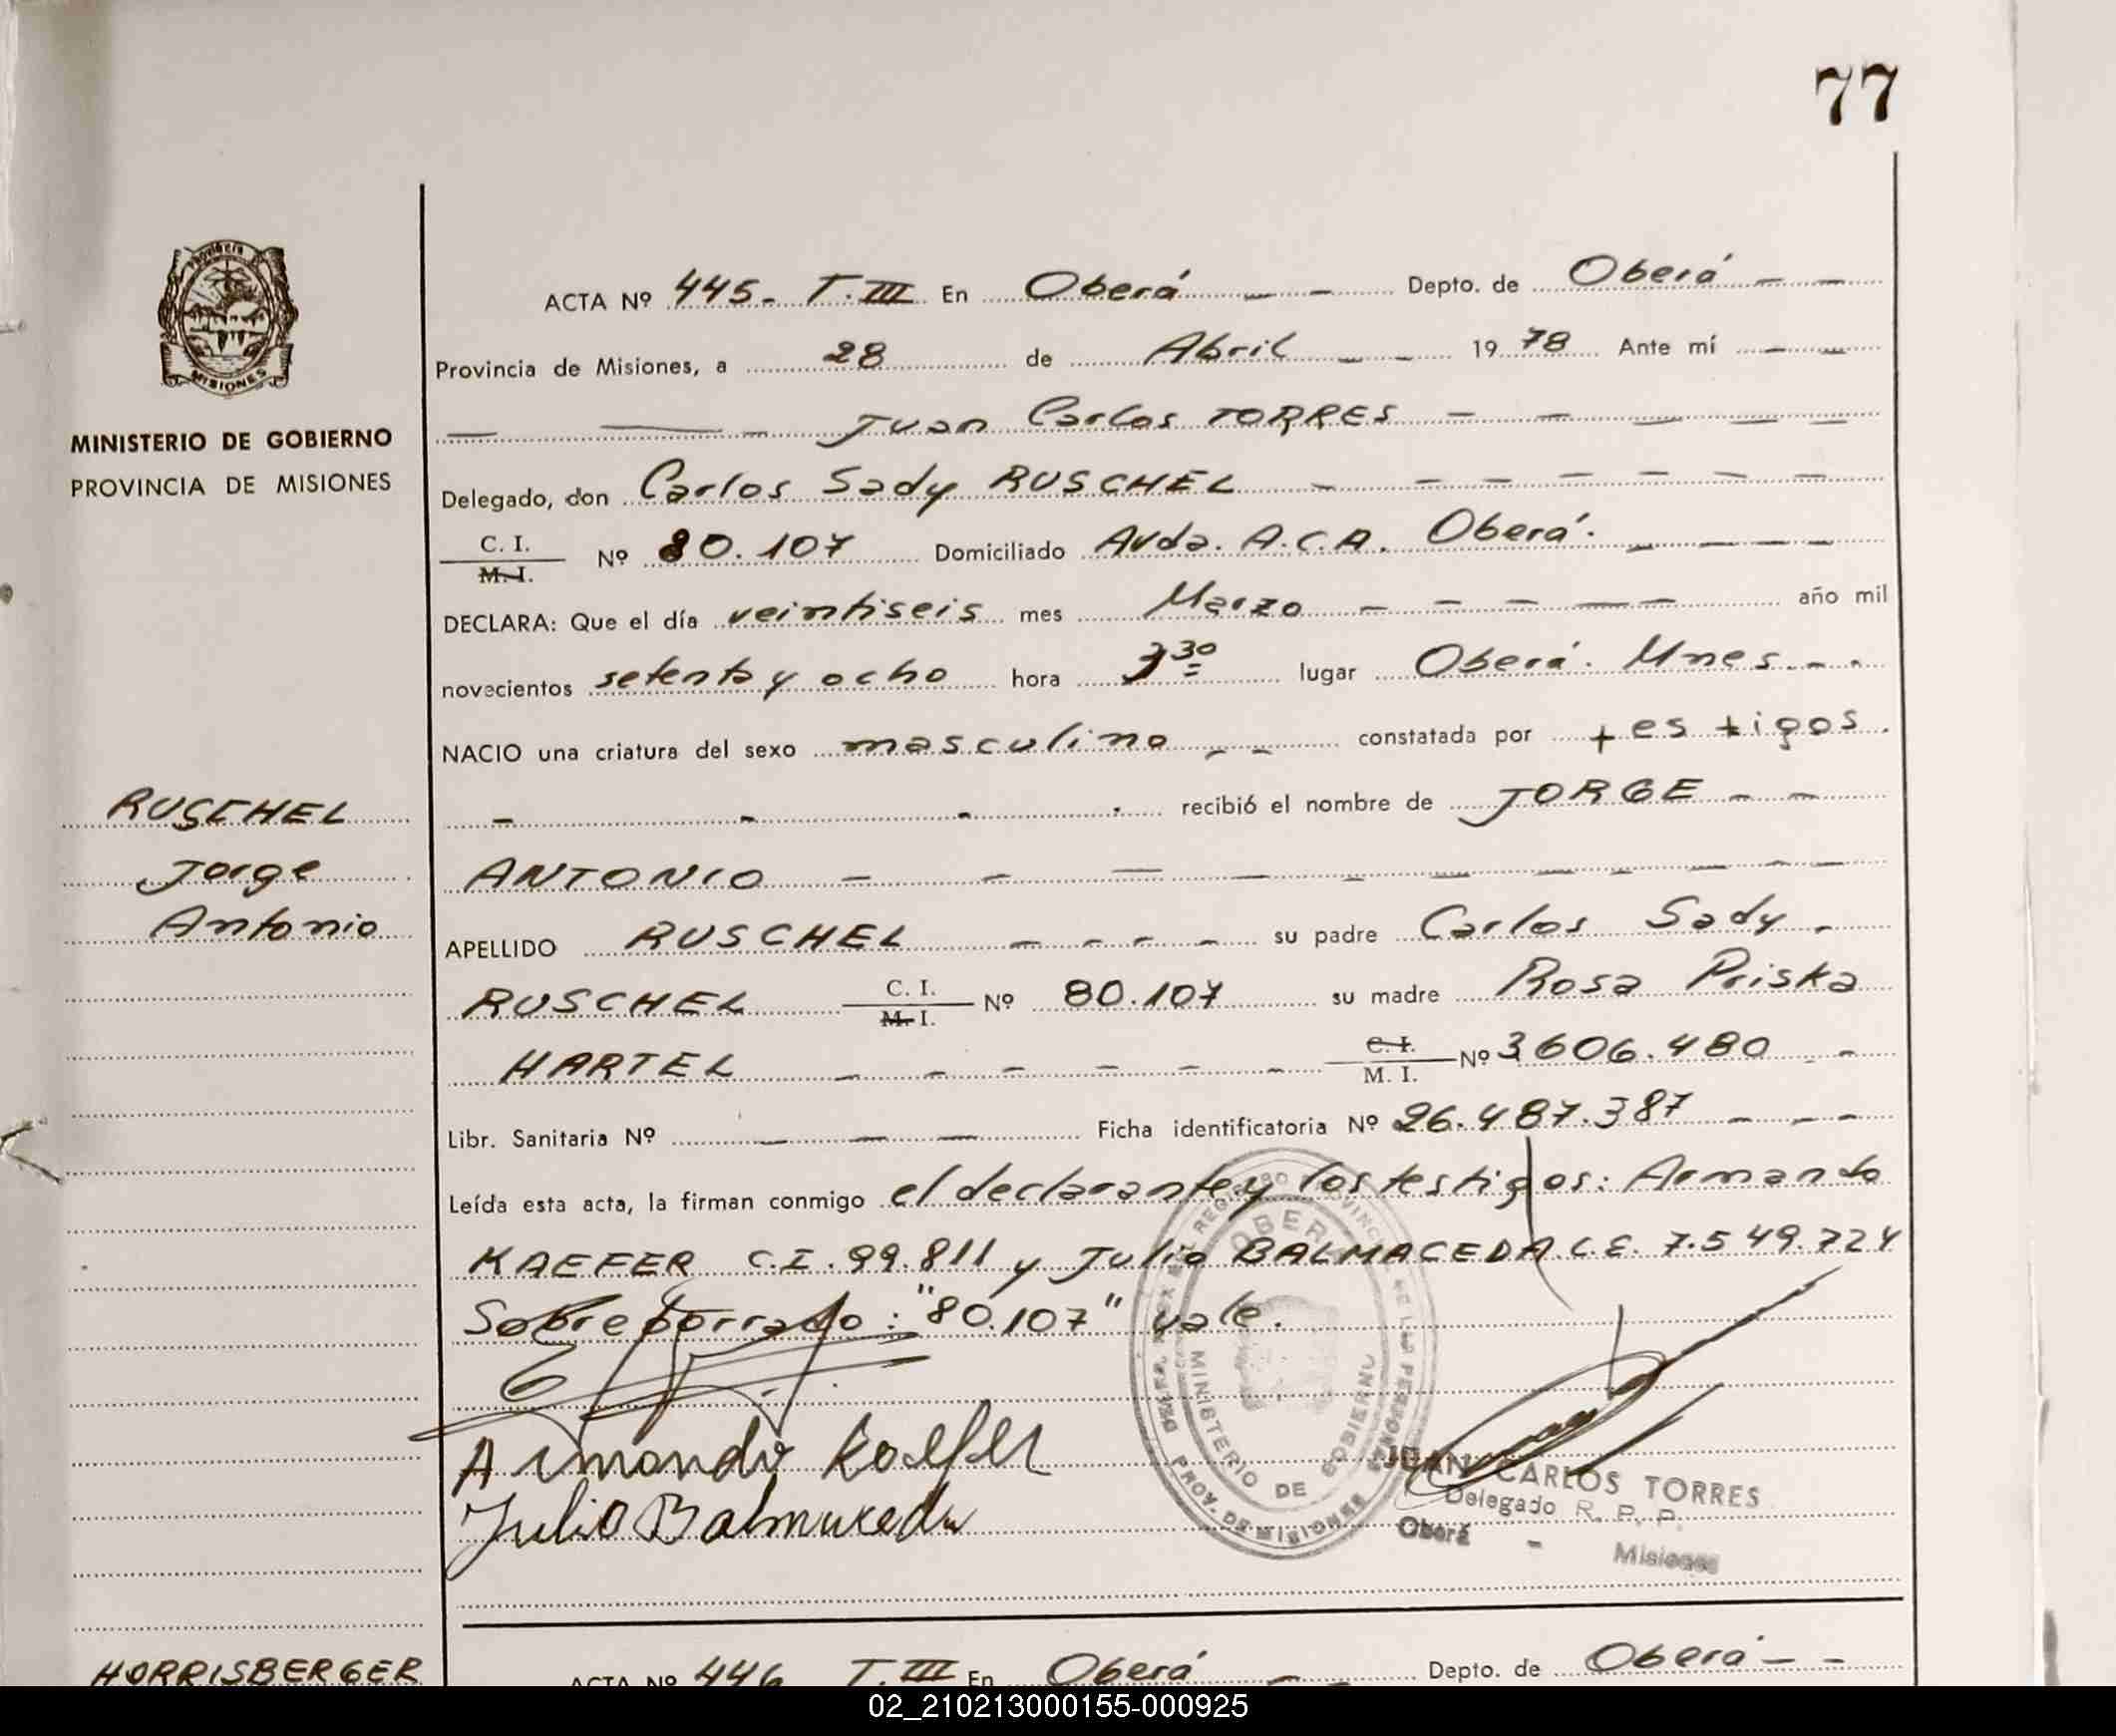 77
Provincia
MISIONES
MINISTERIO DE GOBIERNO
PROVINCIA DE MISIONES
RUSCHEL
Jorge
Antonio
ACTA Nº 445. T. III En Oberá Depto. de Oberá
Provincia de Misiones, a 28 de Abril 19 78 Ante mí
Juan Carlos TORRES
Delegado, don Carlos Sady RUSCHEL
C. I.
M. I. Nº 80.107 Domiciliado Avda. A.C.A. Oberá.
DECLARA: Que el día veintiseis mes Marzo año mil
novecientos setenta y ocho hora 3 30 lugar Oberá. Mnes.
NACIO una criatura del sexo masculino constatada por testigos.
recibió el nombre de JORGE
ANTONIO
APELLIDO RUSCHEL su padre Carlos Sady
RUSCHEL C. I. M. I. Nº 80.107 su madre Rosa Priska
HARTEL C. I. M. I. Nº 3.606.480
Libr. Sanitaria Nº Ficha identificatoria Nº 26.487.387
Leída esta acta, la firman conmigo el declarante y los testigos: Armando
KAEFER C.I. 99.811 y Julio BALMACEDA L.E. 7.549.724
Sobreborrado: "80.107" vale.
Armando Kaefer
Julio Balmaceda
OBERA
MINISTERIO DE GOBIERNO
PROV. DE MISIONES
JUAN CARLOS TORRES
Delegado R. P. P.
Oberá - Misiones
HORRISBERGER
ACTA Nº 446 T. III En Oberá Depto. de Oberá
02_210213000155-000925